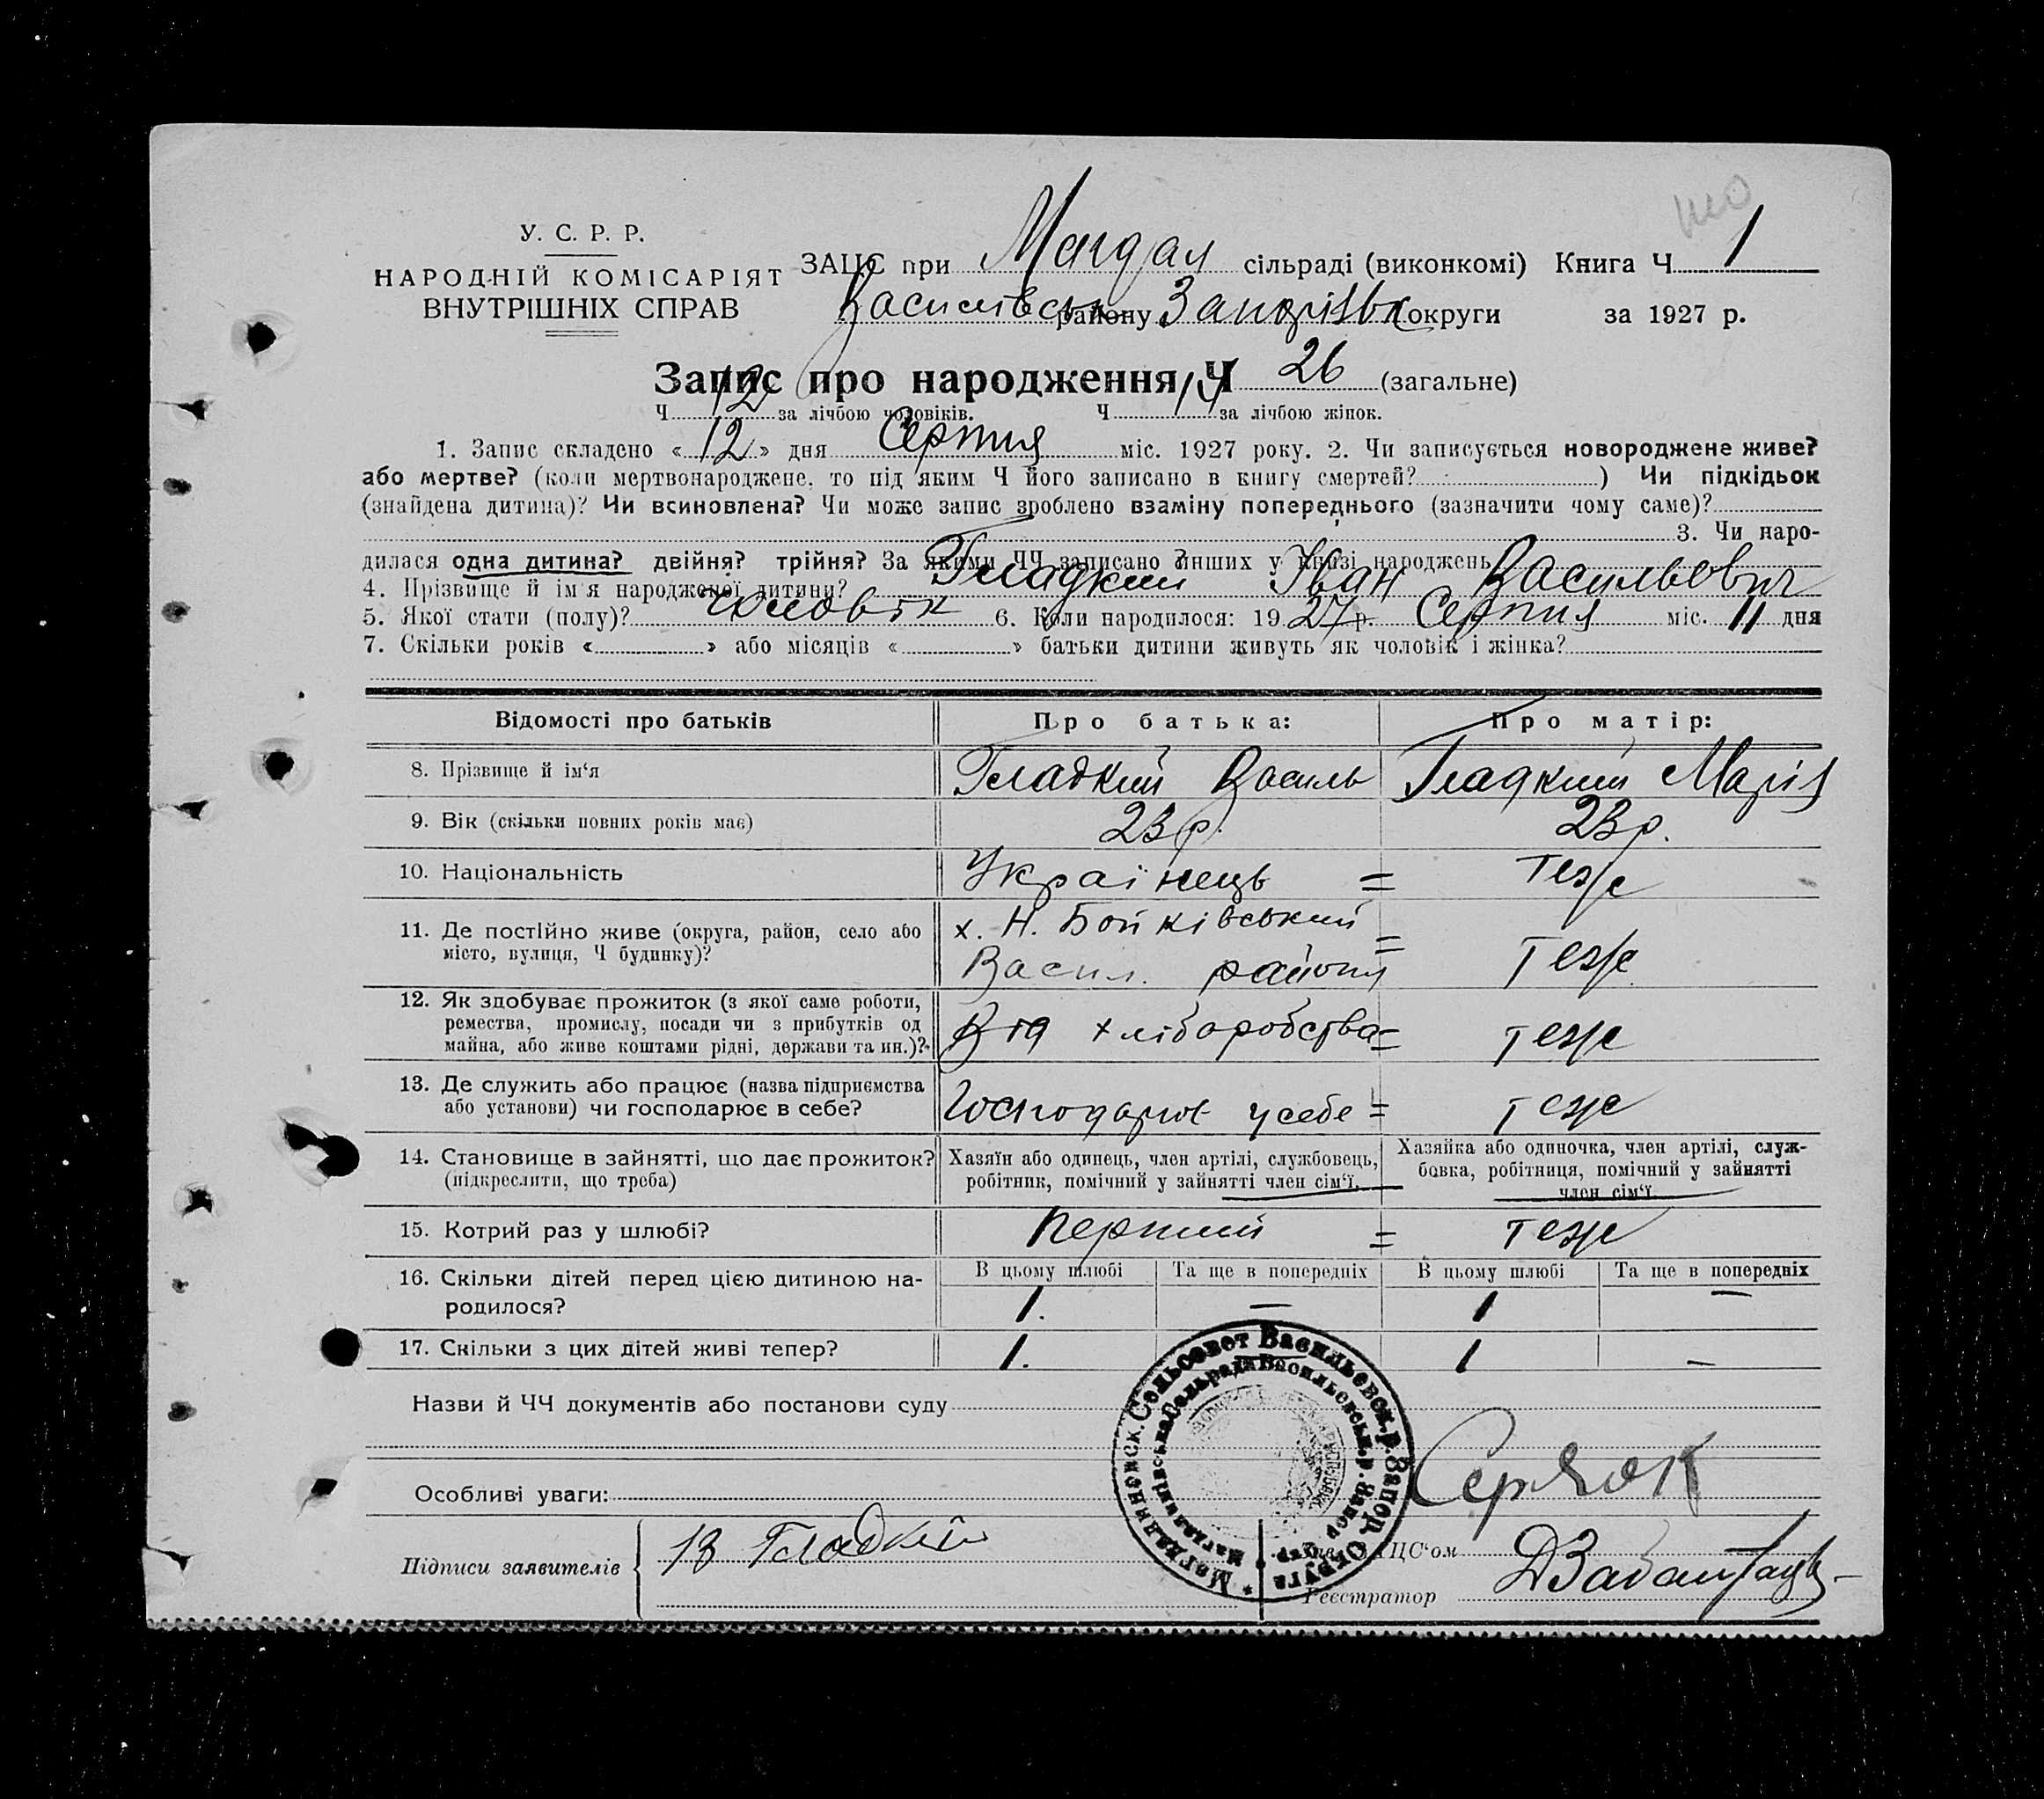 У. С. Р. Р.
НАРОДНІЙ КОМІСАРІЯТ
ВНУТРІШНІХ СПРАВ
ЗАЦС при Магдал сільраді (виконкомі) Книга Ч 1
Василівськ району Запорізьк округи за 1927 р.
Запис про народження Ч 26 (загальне)
Ч 12 за лічбою чоловіків. Ч 14 за лічбою жінок.
1. Запис складено «12» дня Серпня міс. 1927 року. 2. Чи записується новороджене живе?
або мертве? (коли мертвонароджене, то під яким Ч його записано в книгу смертей? ) Чи підкідьок
(знайдена дитина)? Чи всиновлена? Чи може запис зроблено взаміну попереднього (зазначити чому саме)?
3. Чи наро-
дилася одна дитина? двійня? трійня? За якими ЧЧ записано инших у книзі народжень
4. Прізвище й ім'я народженої дитини? Гладкий Іван Васильович
5. Якої стати (полу)? чоловік 6. Коли народилося: 1927 р. Серпня міс. 11 дня
7. Скільки років « » або місяців « » батьки дитини живуть як чоловік і жінка?
Відомості про батьків Про батька: Про матір:
8. Прізвище й ім‘я Гладкий Василь Гладкий Марія
9. Вік (скільки повних років має) 23 р. 23 р.
10. Національність Українець = теж
11. Де постійно живе (округа, район, село або місто, вулиця, Ч будинку)? х. Н. Бойківський = теж
Васил. району
12. Як здобуває прожиток (з якої саме роботи, ремества, промислу, посади чи з прибутків од майна, або живе коштами рідні, держави та ин.)? Від хліборобства = теже
13. Де служить або працює (назва підприємства або установи) чи господарює в себе? Господарює у себе = теже
14. Становище в зайнятті, що дає прожиток? (підкреслити, що треба)
Хазяїн або одинець, член артілі, службовець, робітник, помічний у зайнятті член сім‘ї.
Хазяйка або одиночка, член артілі, служ-бовка, робітниця, помічний у зайнятті член сім‘ї.
15. Котрий раз у шлюбі? перший = теже
16. Скільки дітей перед цією дитиною на-родилося?
В цьому шлюбі Та ще в попередніх В цьому шлюбі Та ще в попередніх
1. — 1 —
17. Скільки з цих дітей живі тепер? 1. 1 —
Назви й ЧЧ документів або постанови суду
Особливі уваги:
Підписи заявителів В Гладкий
ЗАЦС‘ом
Реєстратор
Магдалиновск. Сельсовет Васильевск. р. Запор. Округа
Магдалинівська Сельрада Васильевськ. р. Запор. Окр.